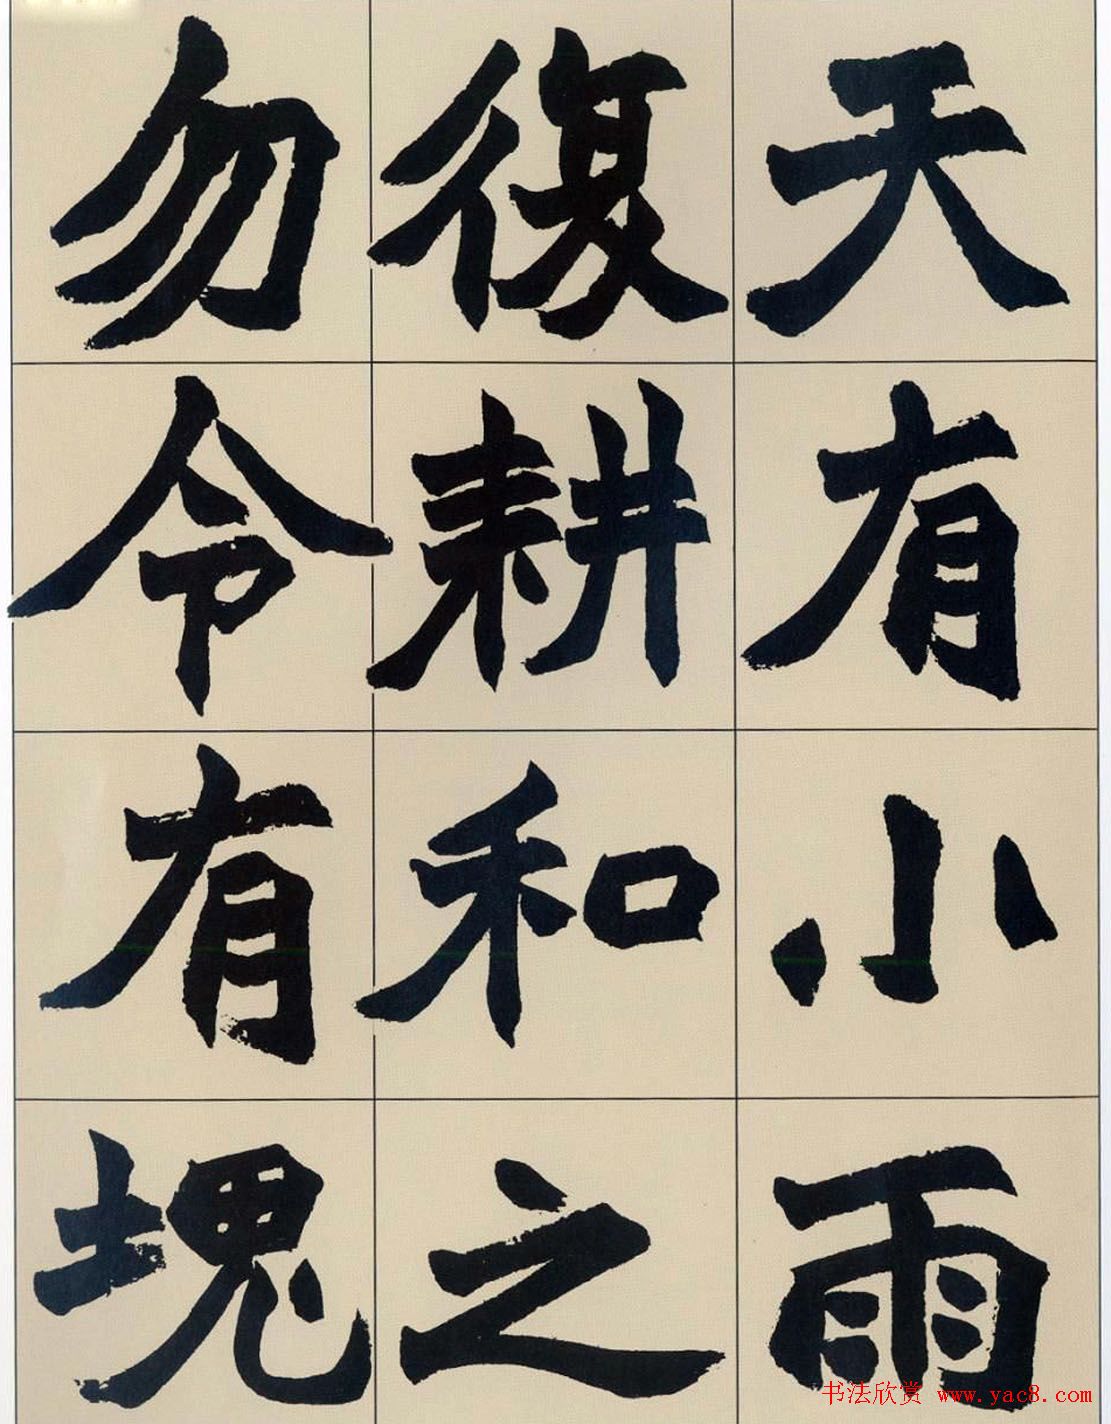 天有小雨
復耕和之
勿令有塊
书法欣赏 www.yac8.com